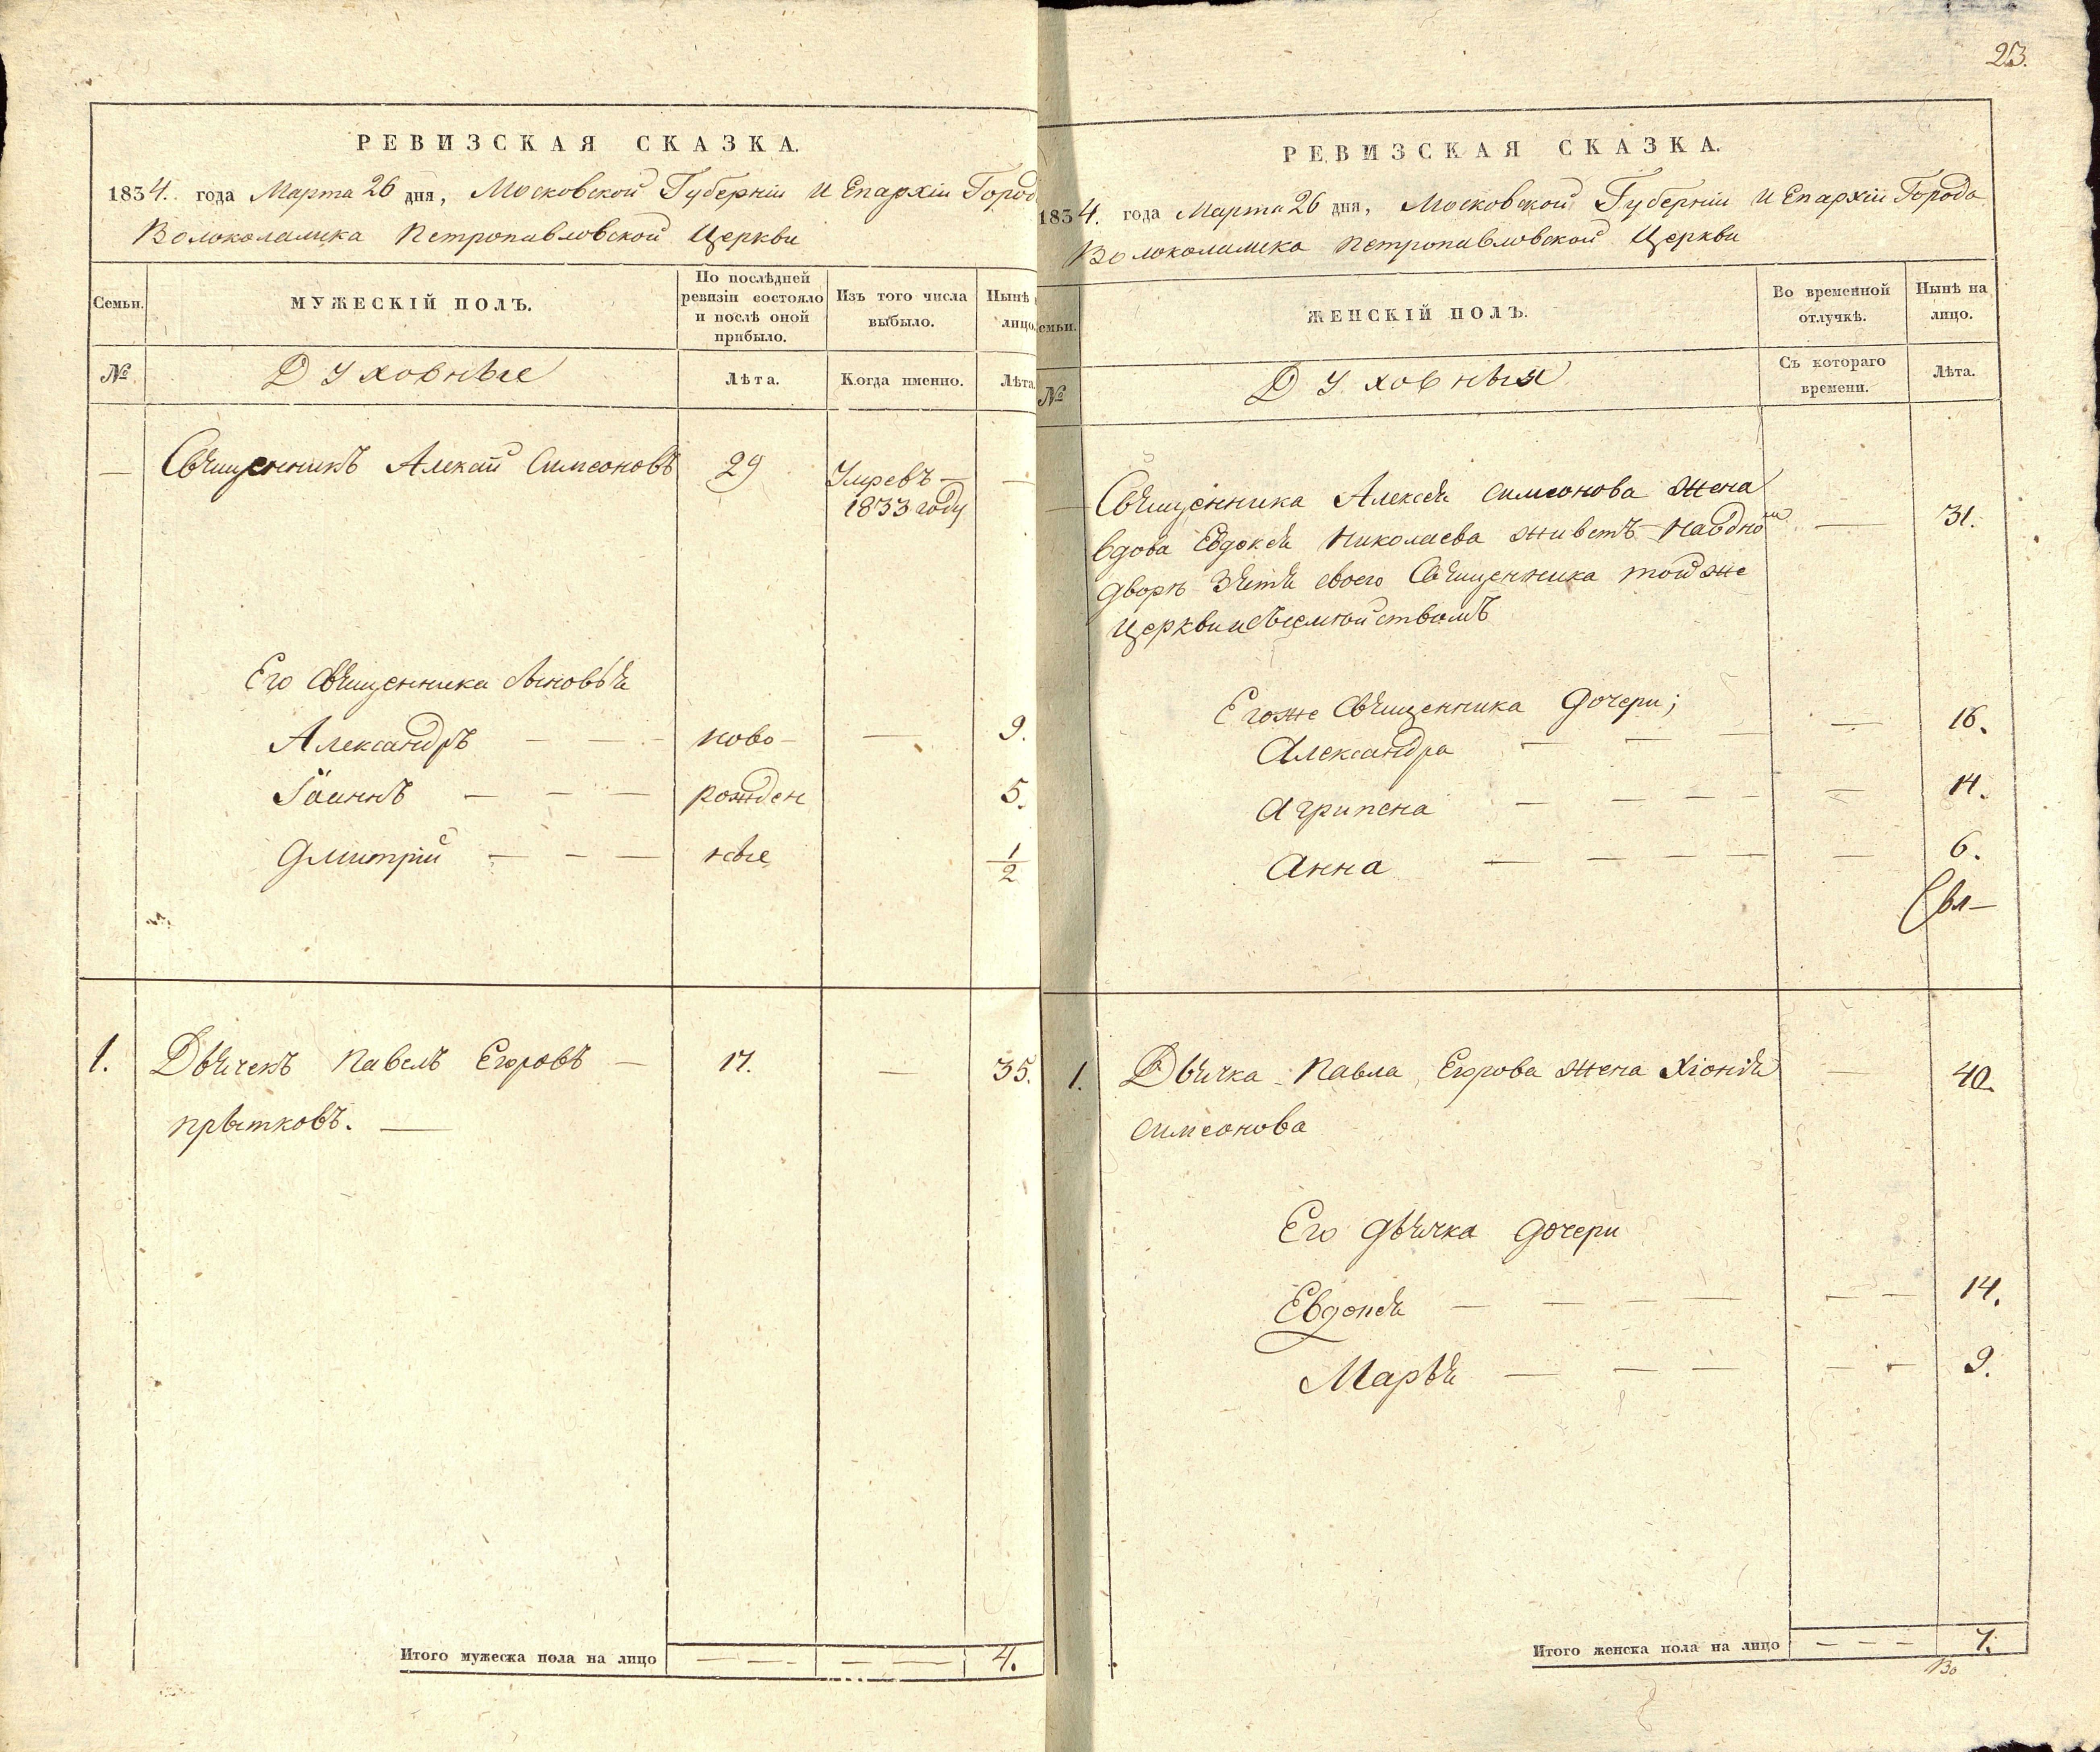 23.
РЕВИЗСКАЯ СКАЗКА.
1834. года Марта 26 дня, Московской Губерніи И Епархіи Город
Волоколамска Петропавловской Церкви
Семьи.
МУЖЕСКІЙ ПОЛЪ.
По послѣдней
ревизіи состояло
и послѣ оной
прибыло.
Изъ того числа
выбыло.
Нынѣ
лицо.
№
Духовные
Лѣта.
Когда именно.
Лѣта.
— Священникъ Алексѣй Симеоновъ 29 Умревъ — —
1833 году
Его Священника Сыновья
Александръ — — — ново — — 9.
Іоаннъ — — — рожден 5.
Дмитрій — — — ные 1/2
1. Дьячекъ Павелъ Егоровъ — 17. — 35.
Прытковъ. —
Итого мужеска пола на лицо — — — — 4.
РЕВИЗСКАЯ СКАЗКА.
1834. года Марта 26 дня, Московской Губерніи И Епархіи Города
Волоколамска Петропавловской Церкви
емьи.
ЖЕНСКІЙ ПОЛЪ.
Во временной
отлучкѣ.
Нынѣ на
лицо.
№
Духовныя
Съ котораго
времени.
Лѣта.
— Священника Алексѣя Симеонова Жена
вдова Евдокѣя Николаева живетъ на одном — 31.
дворѣ Зятя своего Священника тойже
Церкви съсемѣйствомъ
Егоже Священника Дочери;
Александра — — — — 16.
Агрипена — — — — — 11.
Анна — — — — — 6.
Свя—
1. Дьячка Павла Егорова Жена Хіонія — 40.
Симеонова
Его Дьячка Дочери
Евдокѣя — — — — — — 14.
Марья — — — — — 9.
Итого женска пола на лицо — — — 7.
Во